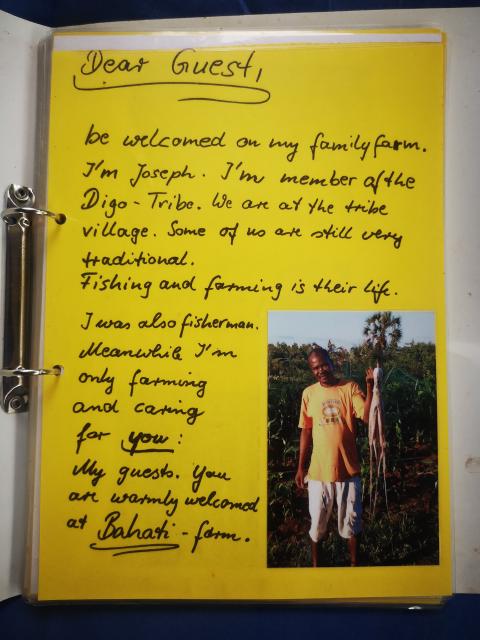 Dear Guest,
be welcomed on my family farm.
I'm Joseph. I'm member of the
Digo-Tribe. We are at the tribe
village. Some of us are still very
traditional.
Fishing and farming is their life.
I was also fisherman.
Meanwhile I'm
only farming
and caring
for you:
My guests. You
are warmly welcomed
at Bahati-farm.